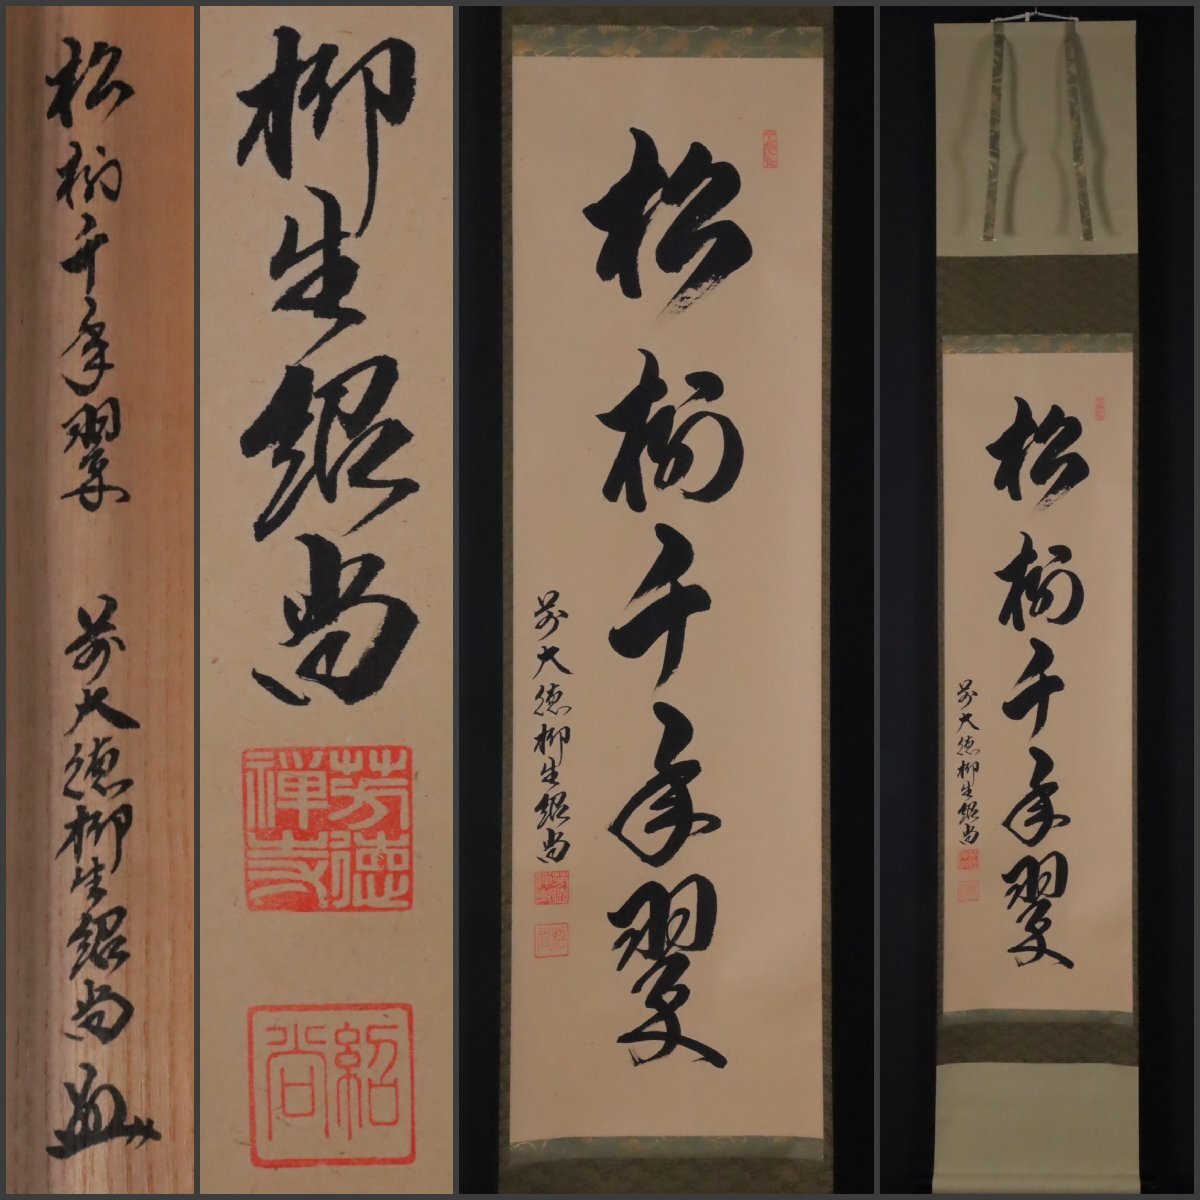 松樹千年翠
前大徳柳生紹尚
柳生紹尚
芳徳禅寺
紹尚
松樹千年翠
前大徳柳生紹尚
芳徳禅寺
紹尚
松樹千年翠
前大徳柳生紹尚